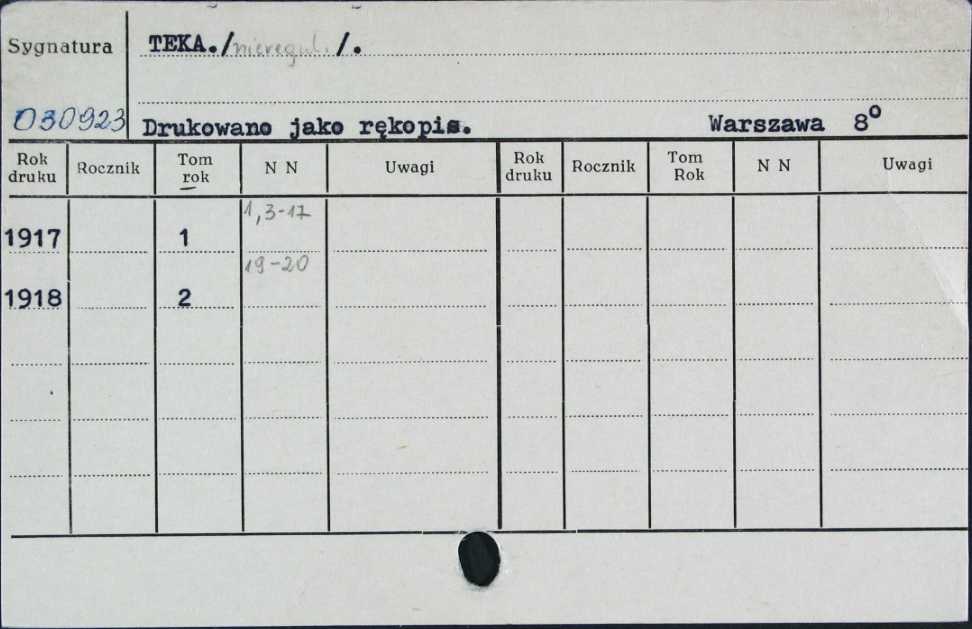 Sygnatura TEKA./nieregul./.
030923 Drukowano jako rękopis. Warszawa 8°
Rok druku Rocznik Tom rok N N Uwagi Rok druku Rocznik Tom Rok N N Uwagi
1917 1 1,3-17
1918 2 19-20